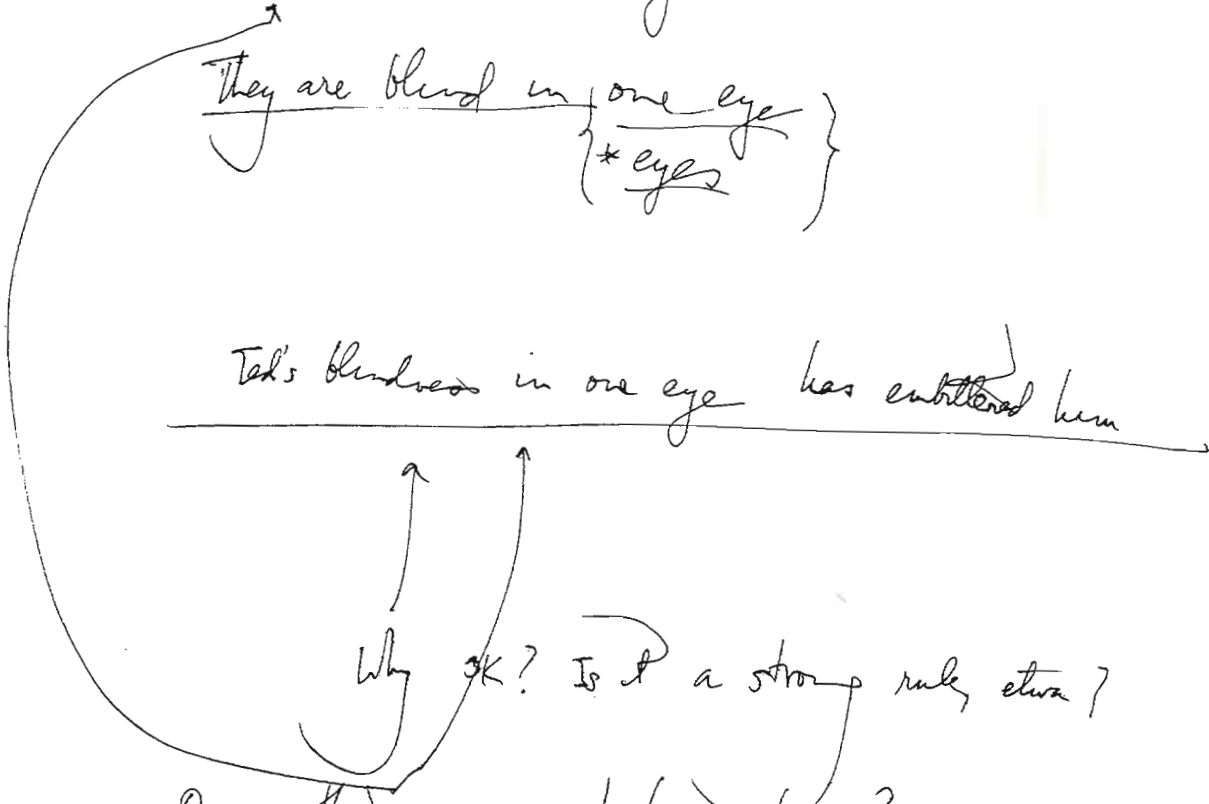 They are blind in { one eye
{ * eyes }
Ted's blindness in one eye has embittered him
Why OK? Is it a strong rule, etwa?